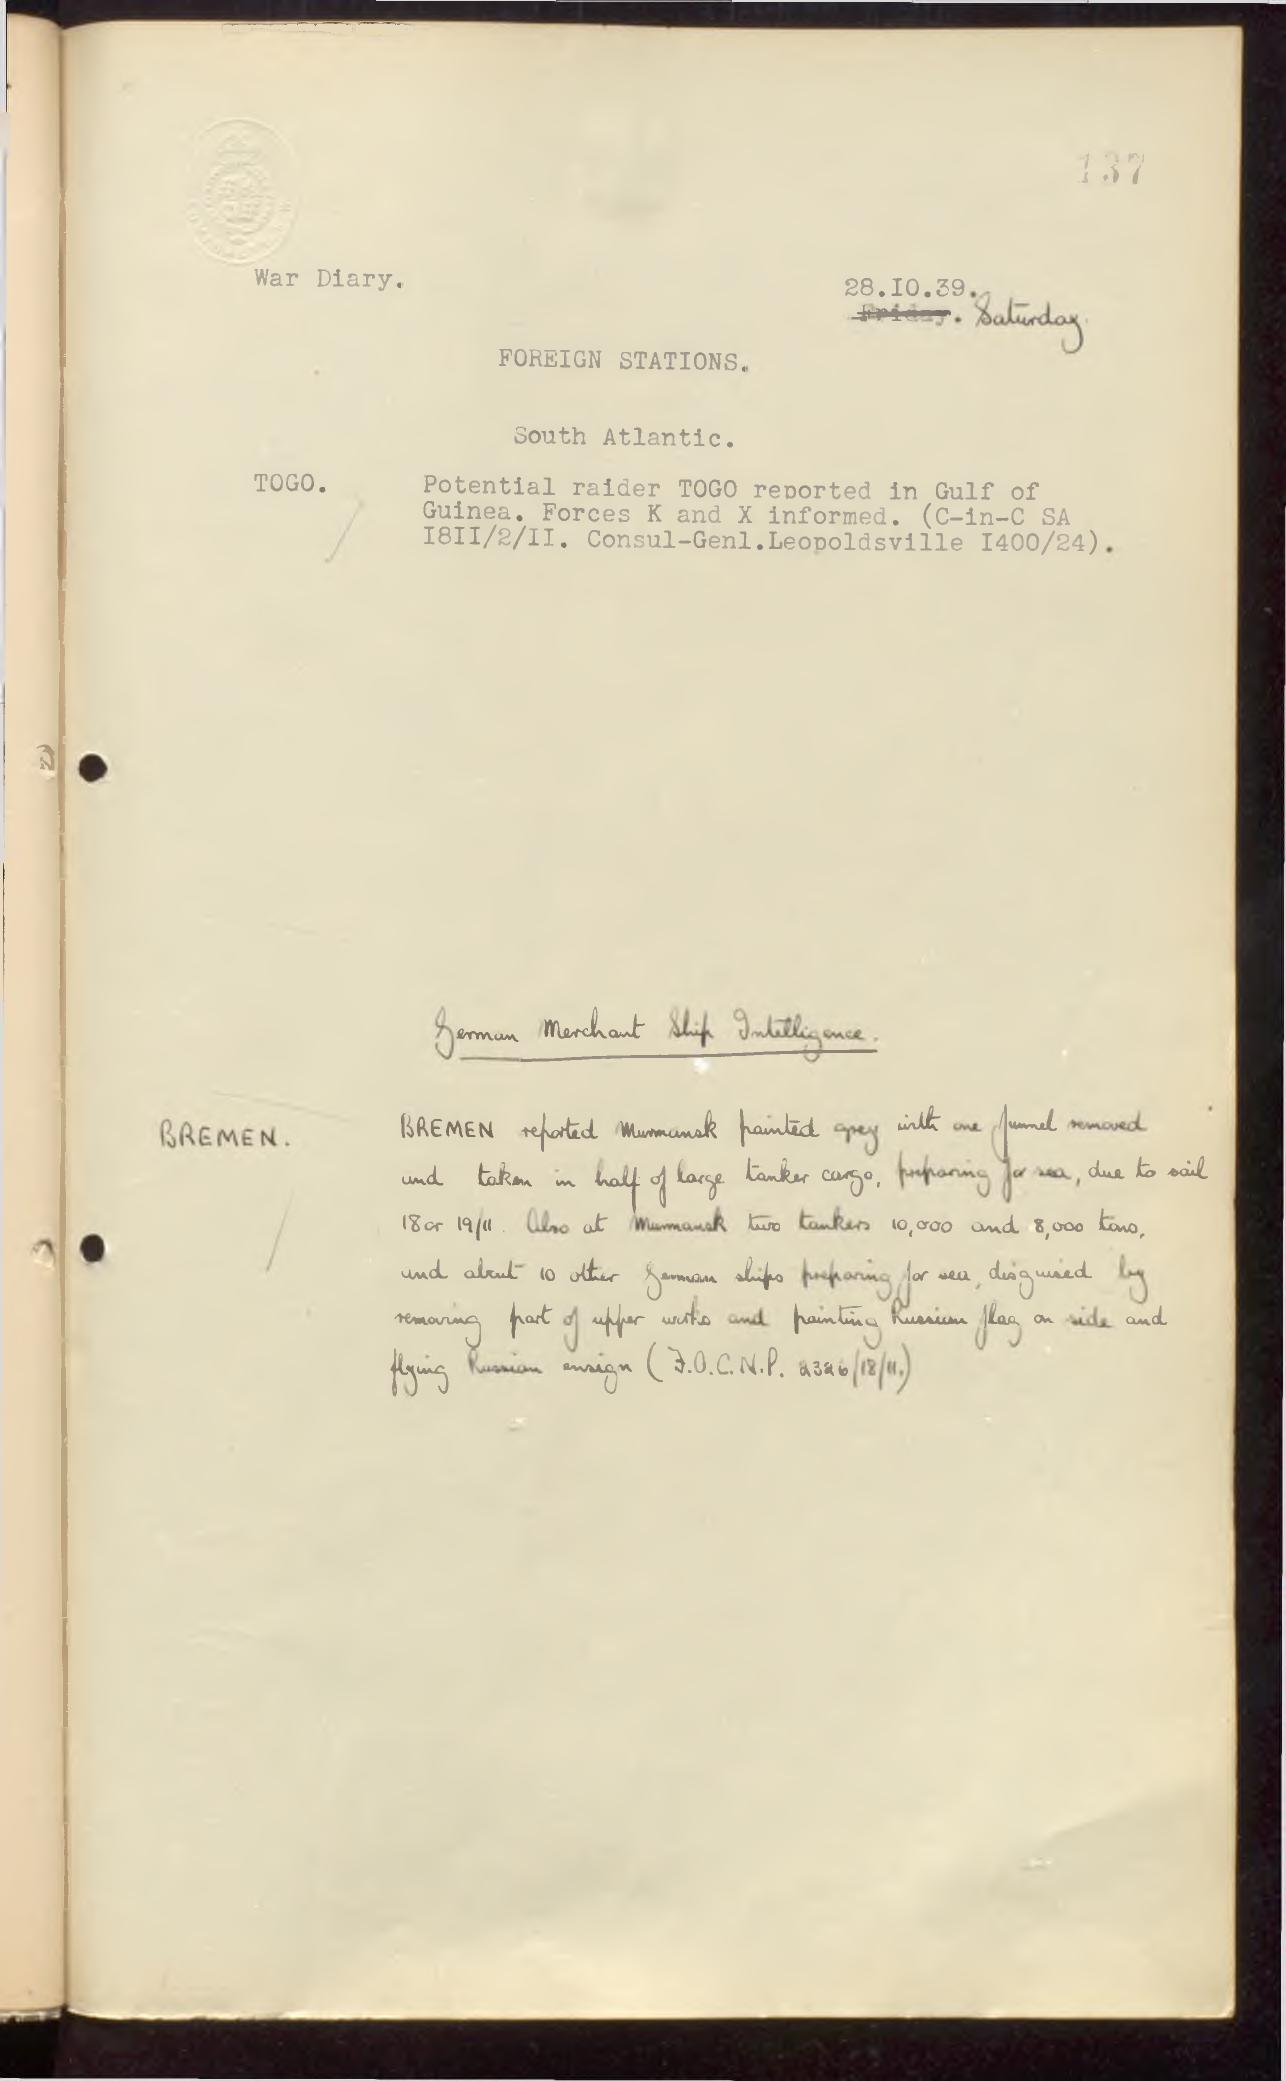 137
War Diary.
28.IO.39.
Friday. Saturday.
FOREIGN STATIONS.
South Atlantic.
TOGO.
Potential raider TOGO reported in Gulf of
Guinea. Forces K and X informed. (C-in-C SA
I8II/2/II. Consul-Genl.Leopoldsville I400/24).
German Merchant Ship Intelligence.
BREMEN.
BREMEN reported Murmansk painted grey with one funnel removed
and taken in half of large tanker cargo, preparing for sea, due to sail
18 or 19/11. Also at Murmansk two tankers 10,000 and 8,000 tons,
and about 10 other German ships preparing for sea, disguised by
removing part of upper works and painting Russian flag on side and
flying Russian ensign (F.O.C.N.P. 2326/18/11.)